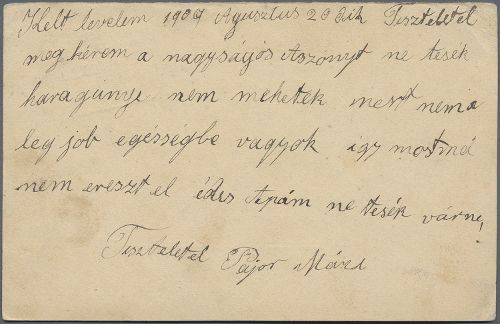 Kelt levelem 1909 Agusztus 20 dik Tisztelettel
meg kérem a nagyságós Aszonyt ne tesék
haragunyi nem mehetek mert nem a
leg job egésségbe vagyok igy mostmá
nem ereszt el édes Apám ne tesék várni,
Tisztelettel Pajor Mári